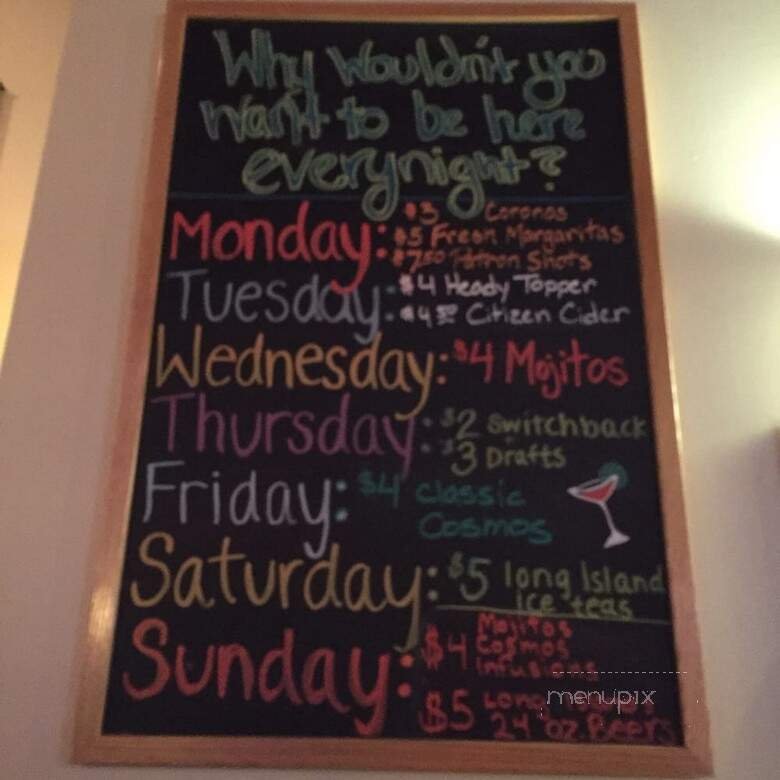 Why Wouldn't you
want to be here
everynight?
Monday: $3 Coronas
$5 Fresh Margaritas
$7.50 Patron Shots
Tuesday: $4 Heady Topper
$4 50 Citizen Cider
Wednesday: $4 Mojitos
Thursday: $2 Switchback
$3 Drafts
Friday: $4 classic
Cosmos
Saturday: $5 long Island
Ice teas
Sunday: $4 Mojitos
Cosmos
Infusions
$5 Long
24 oz. Beers
menupix